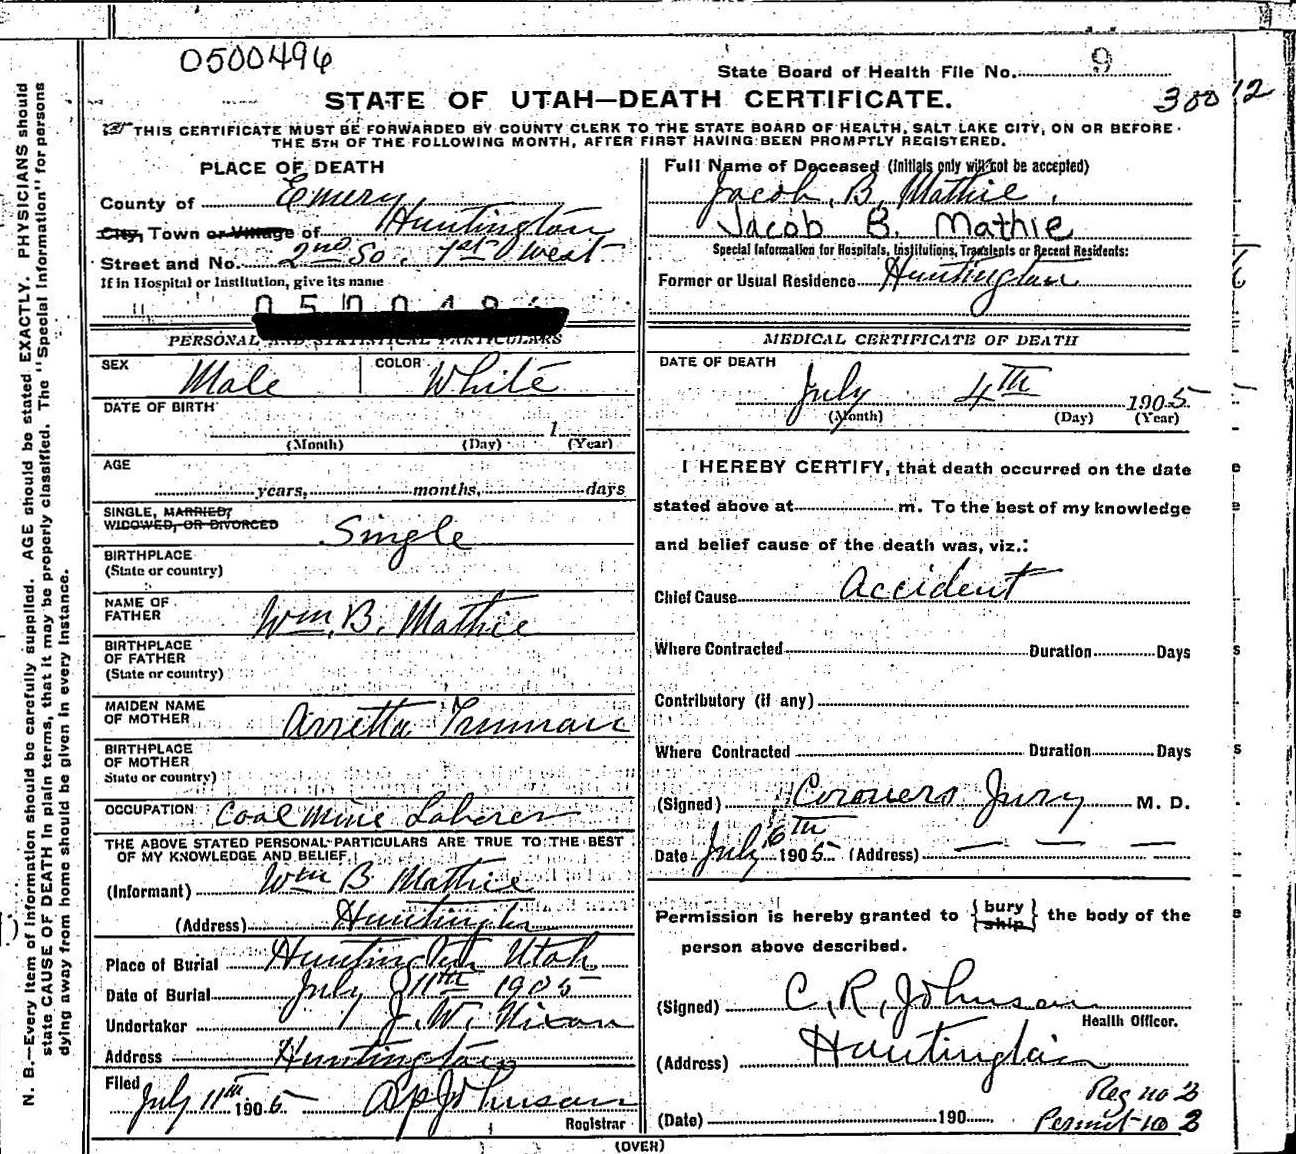 0500496
State Board of Health File No. 9
STATE OF UTAH—DEATH CERTIFICATE.
300 12
THIS CERTIFICATE MUST BE FORWARDED BY COUNTY CLERK TO THE STATE BOARD OF HEALTH, SALT LAKE CITY, ON OR BEFORE
THE 5TH OF THE FOLLOWING MONTH, AFTER FIRST HAVING BEEN PROMPTLY REGISTERED.
PLACE OF DEATH
County of Emery
City, Town or Village of Huntington
Street and No. 2nd So. 1st West
If in Hospital or Institution, give its name
Full Name of Deceased (Initials only will not be accepted)
Jacob. B. Mathie.
Jacob B. Mathie
Special Information for Hospitals, Institutions, Transients or Recent Residents:
Former or Usual Residence Huntington
PERSONAL AND STATISTICAL PARTICULARS
SEX Male COLOR White
DATE OF BIRTH
1
(Month) (Day) (Year)
AGE
years, months, days
SINGLE, MARRIED,
WIDOWED, OR DIVORCED Single
BIRTHPLACE
(State or country)
NAME OF
FATHER Wm. B. Mathie
BIRTHPLACE
OF FATHER
(State or country)
MAIDEN NAME
OF MOTHER Arretta Truman
BIRTHPLACE
OF MOTHER
State or country)
OCCUPATION Coal Mine Laborer
THE ABOVE STATED PERSONAL PARTICULARS ARE TRUE TO THE BEST
OF MY KNOWLEDGE AND BELIEF.
(Informant) Wm B Mathie
(Address) Huntington
Place of Burial Huntington Utah
Date of Burial July 11th 1905
Undertaker J. W. Nixon
Address Huntington
Filed
July 11th 1905 Johnson
Registrar
MEDICAL CERTIFICATE OF DEATH
DATE OF DEATH
July 4TH 1905
(Month) (Day) (Year)
I HEREBY CERTIFY, that death occurred on the date
stated above at m. To the best of my knowledge
and belief cause of the death was, viz.:
Chief Cause Accident
Where Contracted Duration Days
Contributory (if any)
Where Contracted Duration Days
(Signed) Coroners Jury M. D.
Date July 6TH 1905 (Address) — — —
Permission is hereby granted to {bury ship} the body of the
person above described.
(Signed) C. R. Johnson
Health Officer.
(Address) Huntington
Reg no 2
(Date) 190 Permit no 2
(OVER)
N. B.—Every item of information should be carefully supplied. AGE should be stated EXACTLY. PHYSICIANS should
state CAUSE OF DEATH in plain terms, that it may be properly classified. The "Special Information" for persons
dying away from home should be given in every instance.